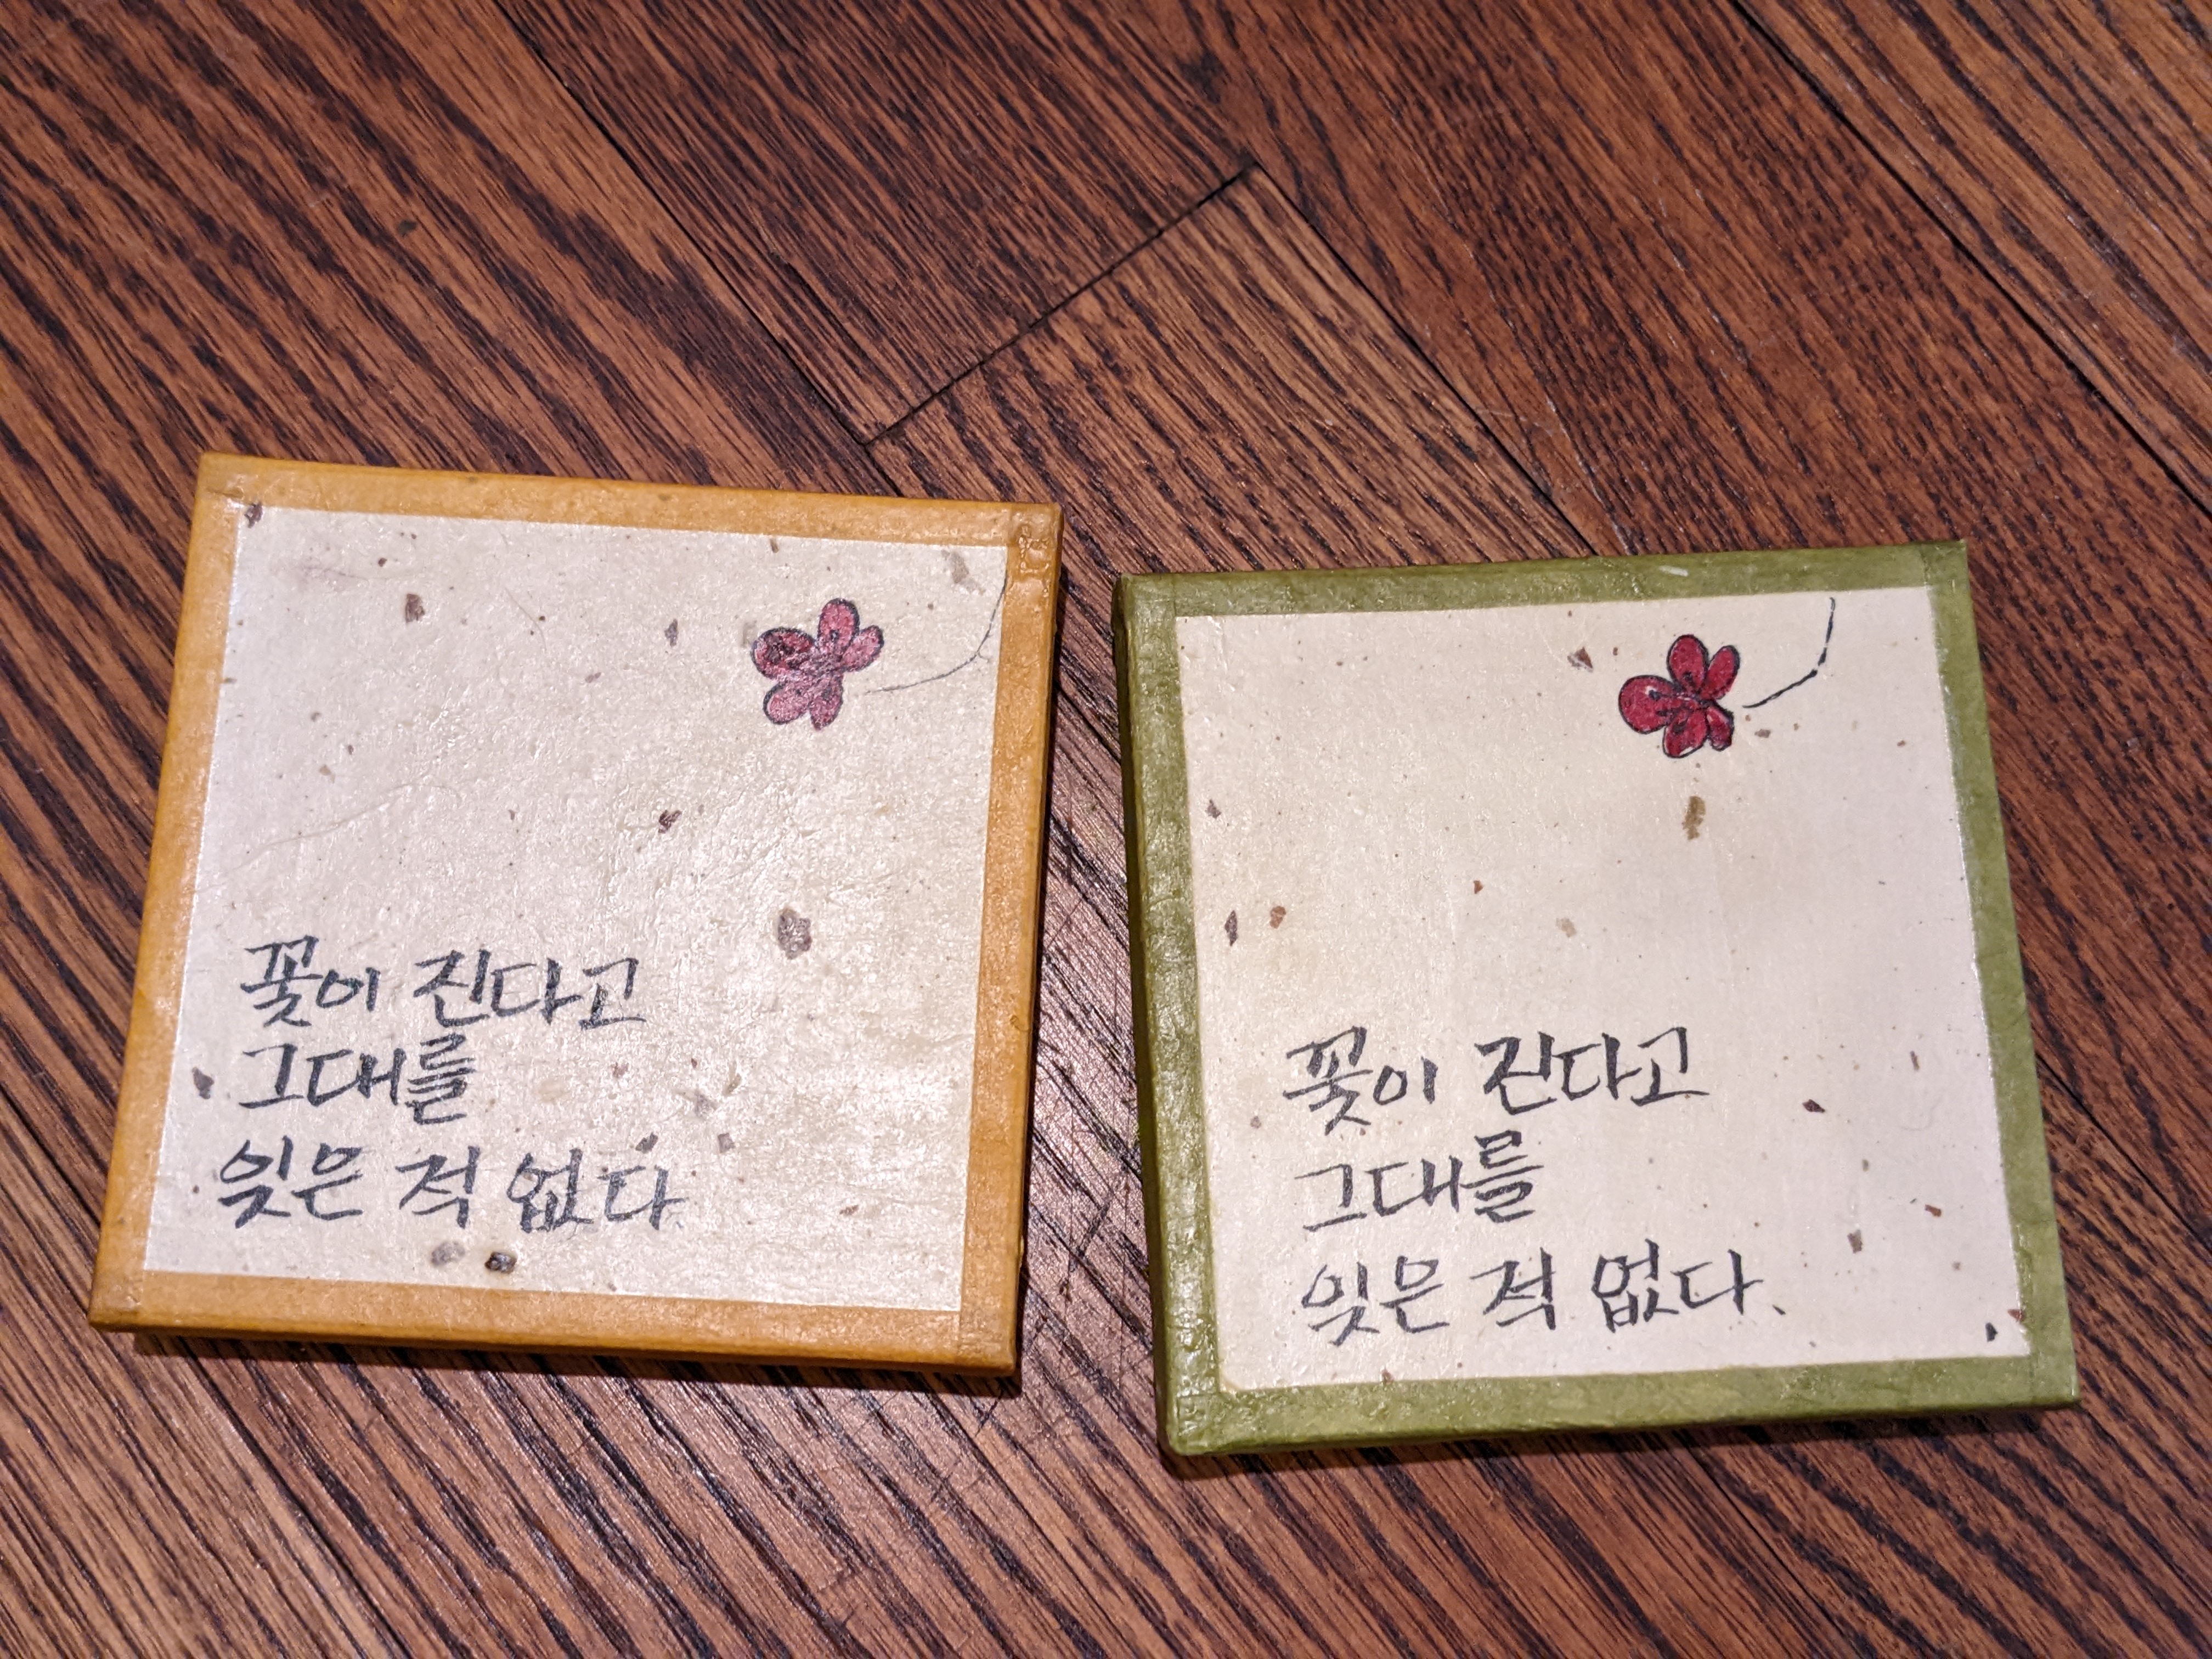 꽃이 진다고
그대를
잊은 적 없다
꽃이 진다고
그대를
잊은 적 없다.